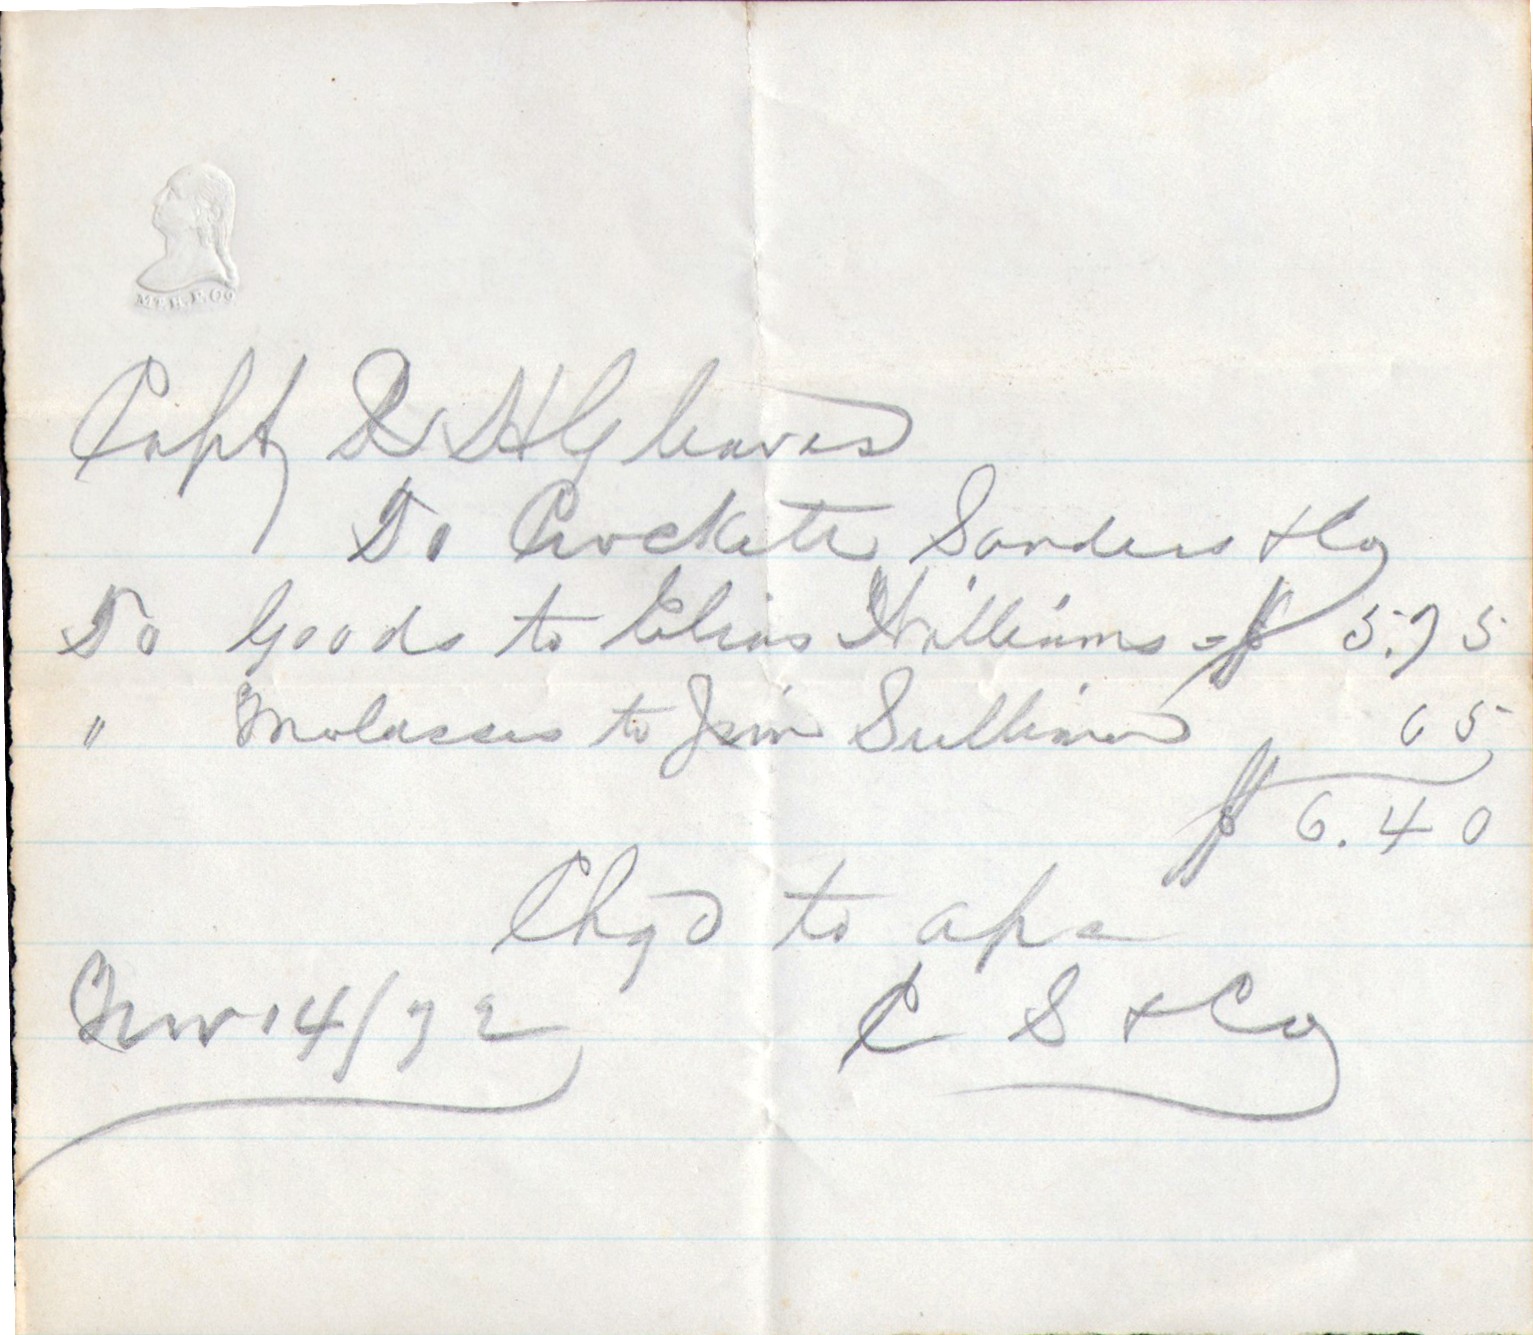 MT. H. P. CO
Capt D H Cleaves
To Crockett Sanders & Co
To Goods to Elias Williams - $ 5.75
" Molasses to Jim Sullivan 65
$ 6.40
Chgd to a/c
Nov 14/72 C S & Co